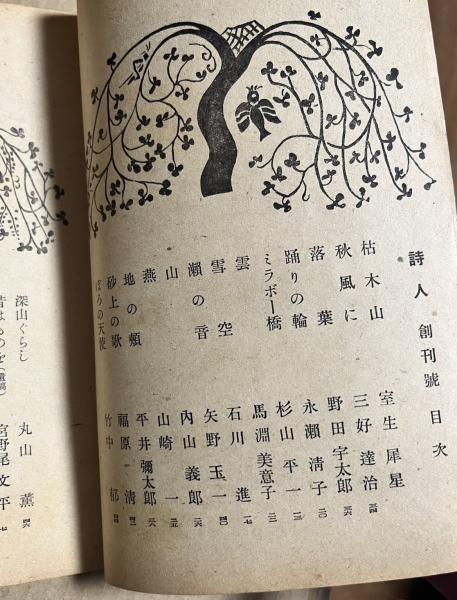 詩人 創刊號 目次
枯木山 室生犀星
秋風に 三好達治
落葉 野田宇太郎
踊りの輪 永瀨清子
ミラボー橋 杉山平一
雲 馬淵美意子
雪空 石川進
瀨の音 矢野玉一
山 內山義郎
燕 山崎一
地の頰 平井彌太郎
砂上の歌 福原清
ぼろの天使 竹中郁
深山ぐらし 丸山薰
昔はものを(遺稿) 宮野尾文平